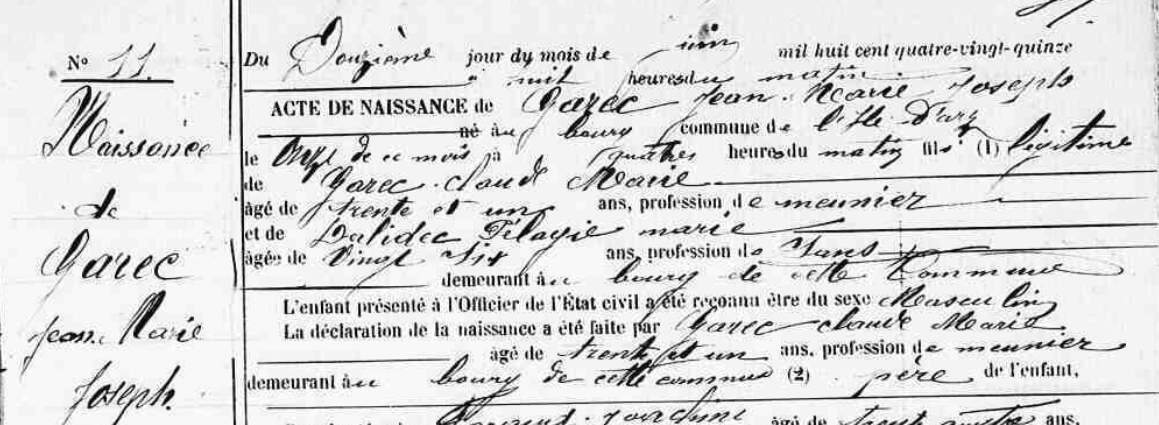 N° 11.
Naissance
de
Garec
Jean Marie
Joseph.
Du Douzième jour du mois de juin mil huit cent quatre-vingt-quinze
à huit heures du matin
ACTE DE NAISSANCE de Garec Jean Marie Joseph
né au bourg commune de l'Ile D'arz
le Onze de ce mois à quatre heures du matin fils (1) légitime
de Garec Claude Marie
âgé de trente et un ans, profession de meunier
et de Dalidec Pélagie marie
âgée de Vingt Six ans, profession de Sans
demeurant au bourg de cette Commune
L'enfant présenté à l'Officier de l'État civil a été reconnu être du sexe Masculin
La déclaration de la naissance a été faite par Garec Claude Marie
âgé de trente et un ans, profession de meunier
demeurant au bourg de cette commune (2) père de l'enfant,
âgé de trente quatre ans,